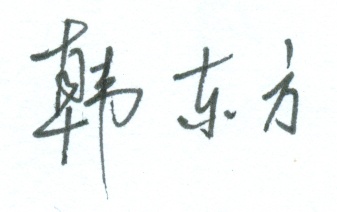 韩东方